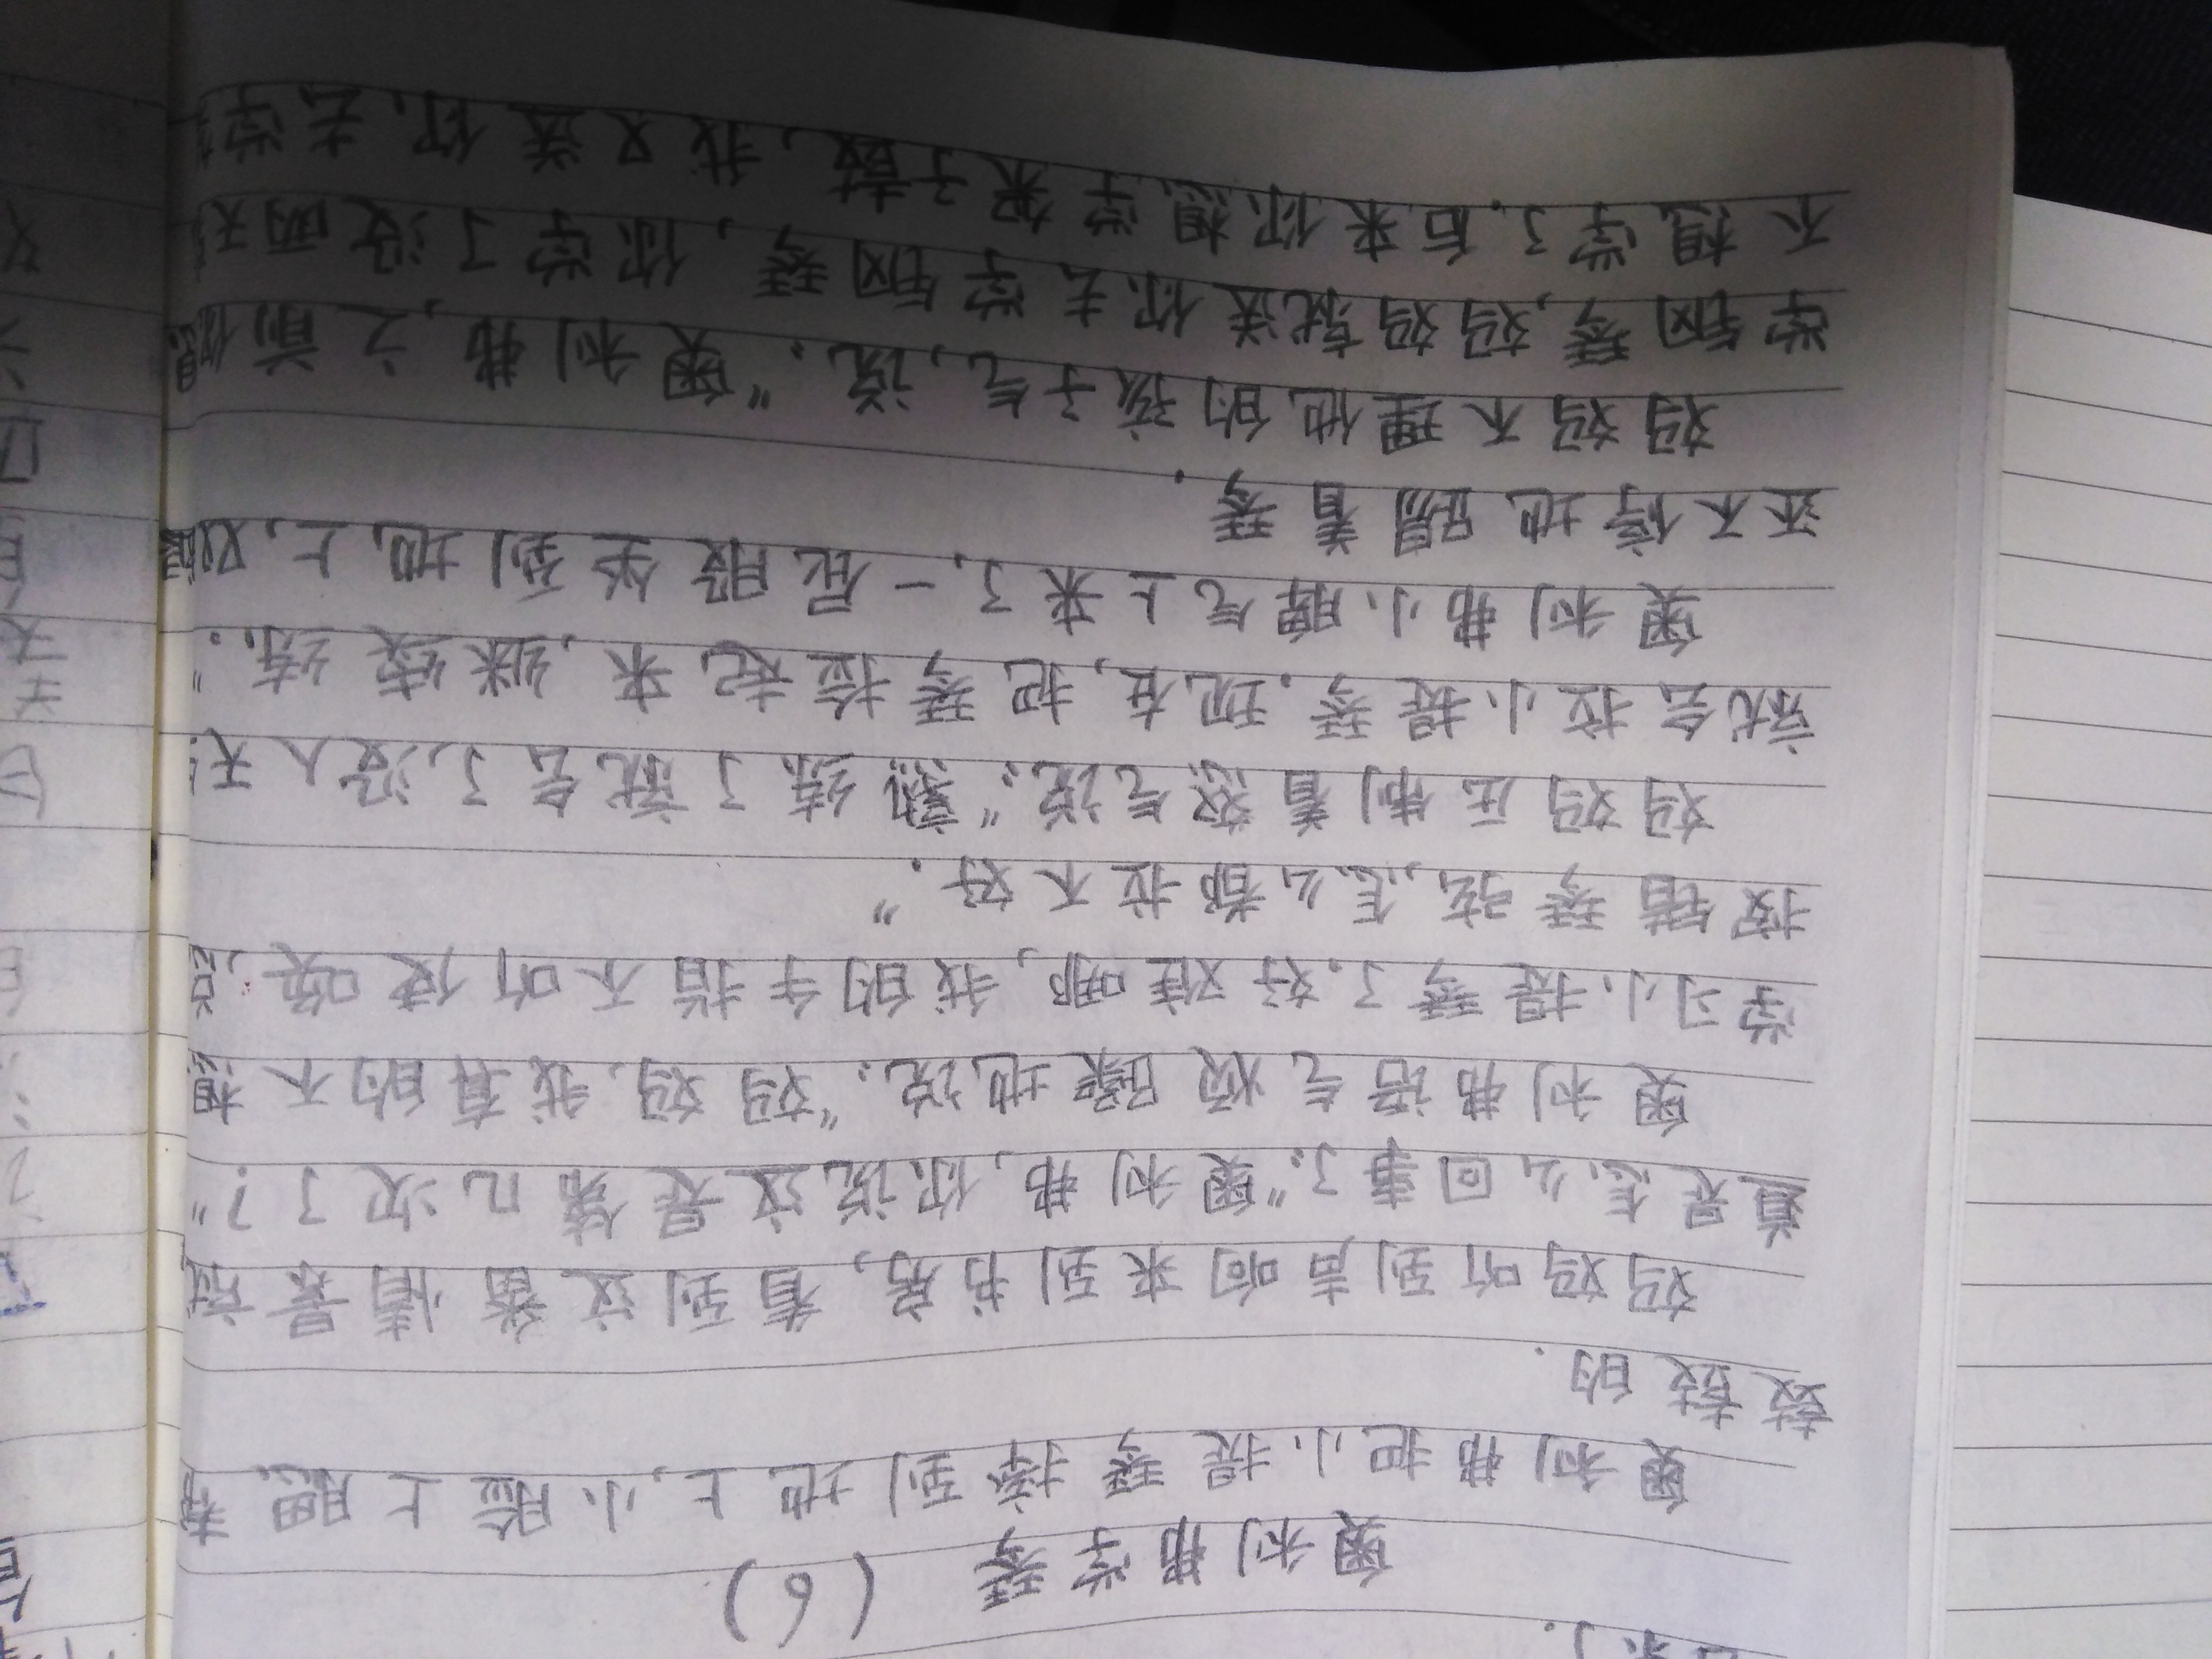 来了.
奥利弗学琴 (6)
奥利弗把小提琴摔到地上,小脸上腮帮
鼓鼓的.
妈妈听到声响来到书房,看到这番情景就
道是怎么回事了:"奥利弗,你说这是第几次了?"
奥利弗语气烦躁地说:"妈妈,我真的不想
学习小提琴了.好难哪,我的手指不听使唤,总
按错琴弦,怎么都拉不好."
妈妈压制着怒气说:"熟练了就会了,没人天生
就会拉小提琴.现在,把琴捡起来,继续练."
奥利弗小脾气上来了,一屁股坐到地上,双脚
还不停地踢着琴.
妈妈不理他的孩子气,说:"奥利弗,之前你想
学钢琴,妈妈就送你去学钢琴,你学了没两天
不想学了.后来你想学架子鼓,我又送你去学